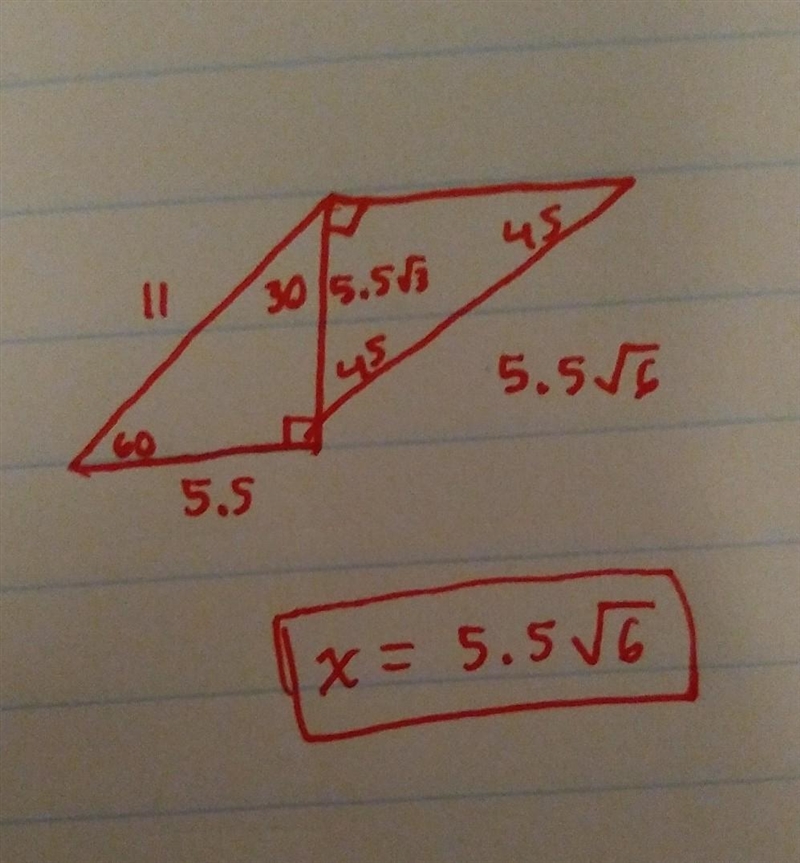 45
11
30 5.5√3
45
5.5√6
60
5.5
x = 5.5√6